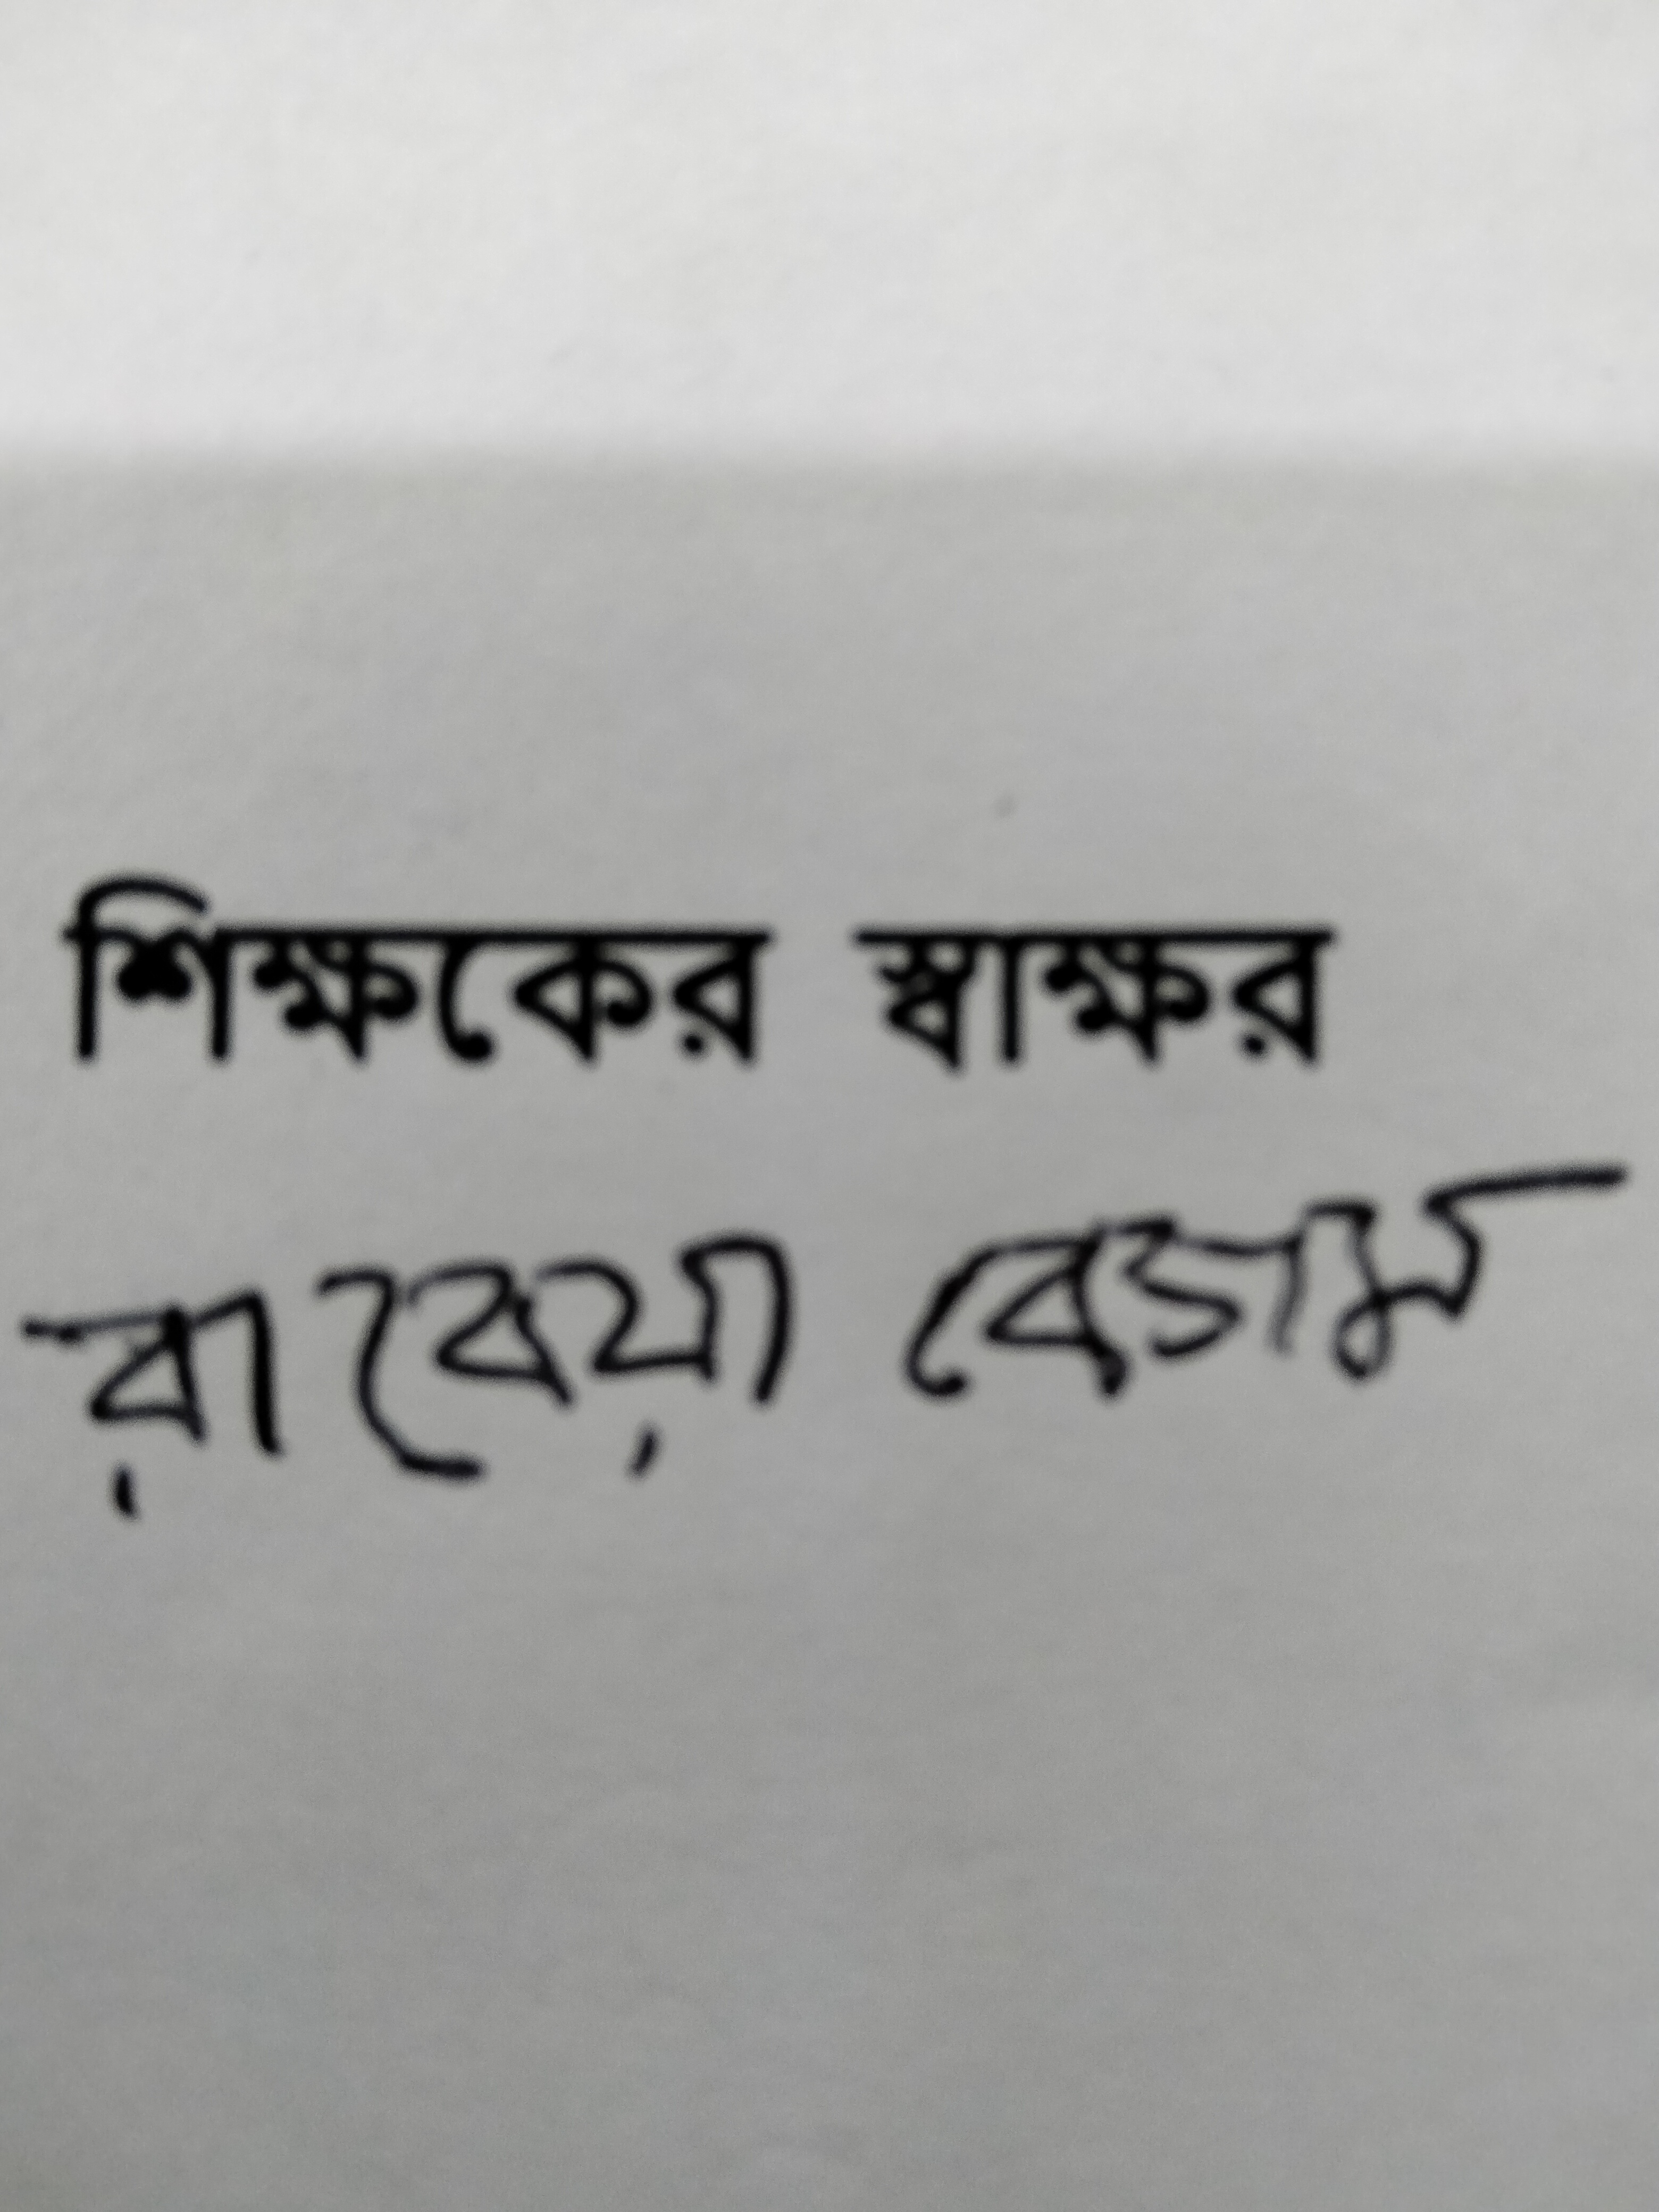 শিক্ষকের স্বাক্ষর
রাবেয়া বেগম